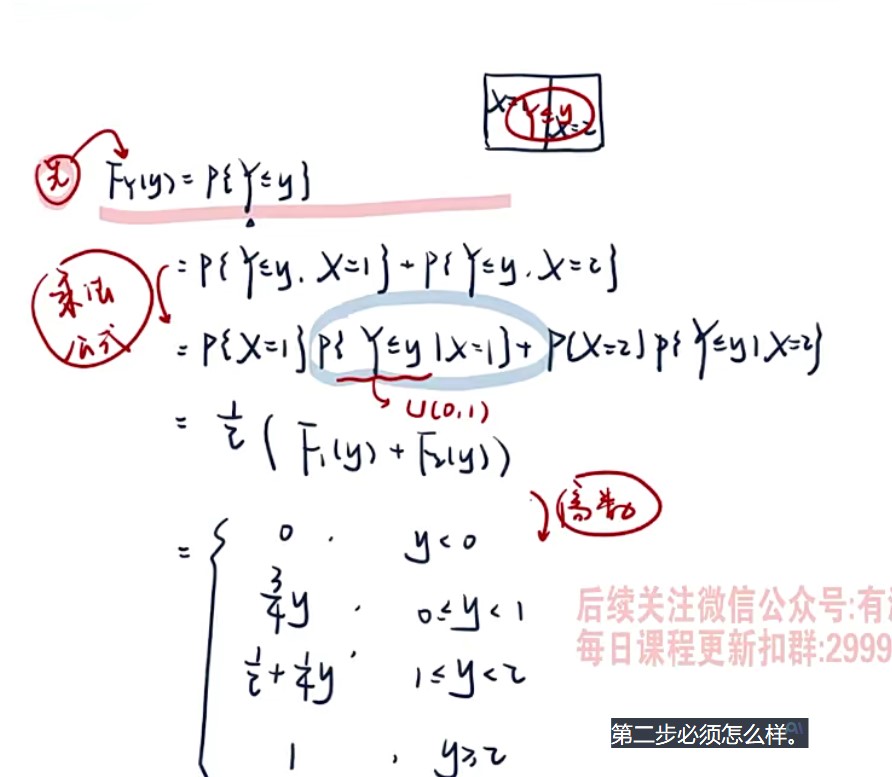 X=1 Y≤y X=2
先 F_Y(y) = P{Y≤y}
= P{Y≤y, X=1} + P{Y≤y, X=2}
乘法
公式
= P{X=1} P{Y≤y | X=1} + P(X=2) P{Y≤y | X=2}
U(0,1)
= 1/2 (F₁(y) + F₂(y))
高数
= { 0, y<0
3/4 y, 0≤y<1
1/2 + 1/4 y, 1≤y<2
1, y≥2
后续关注微信公众号:有
每日课程更新扣群:2999
第二步必须怎么样。